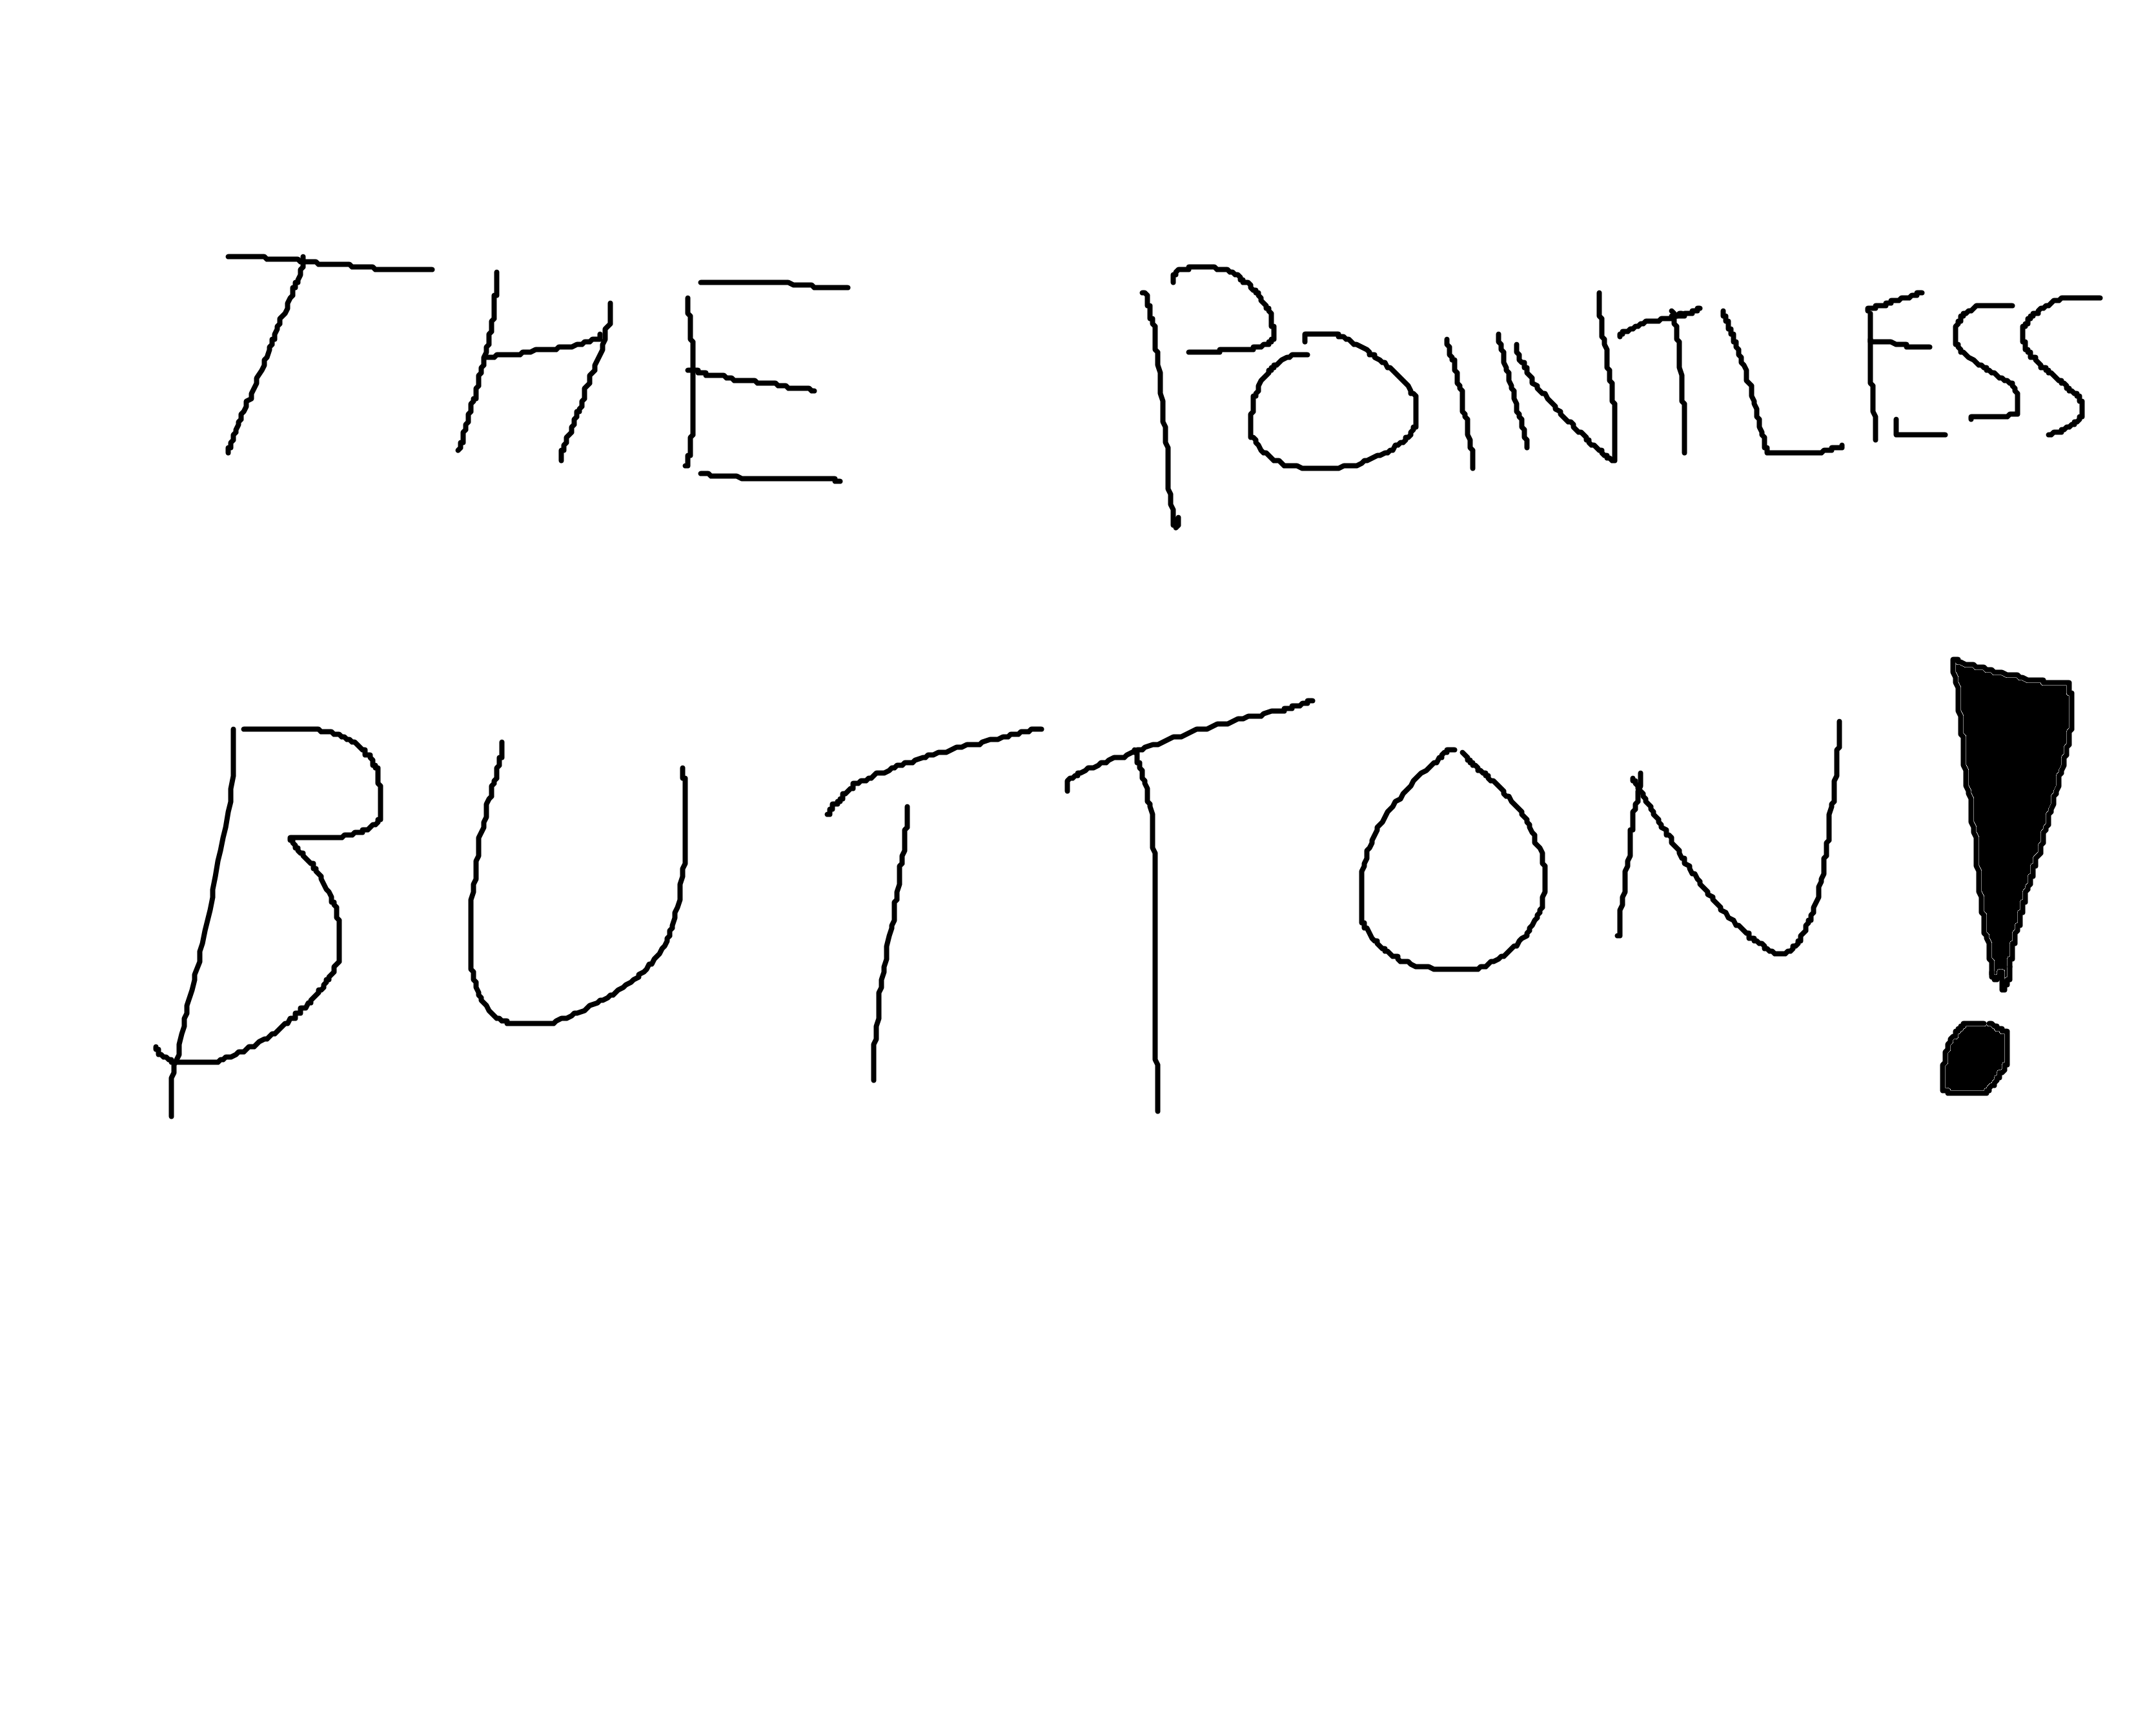 THE POINTLESS
BUTTON!